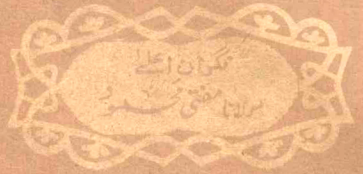 نگران اعلےٰ
مولانا مفتی محمود